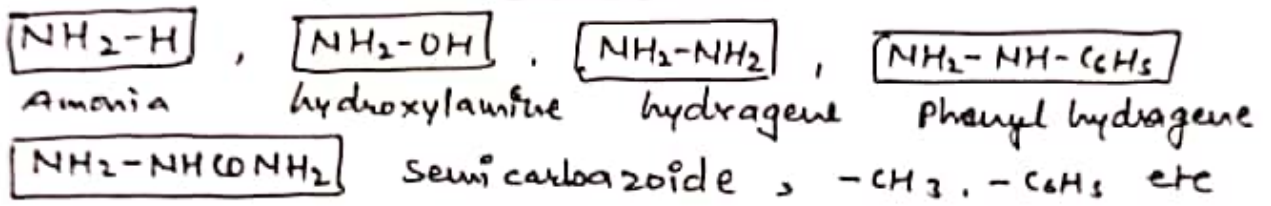 NH₂-H , NH₂-OH , NH₂-NH₂ , NH₂-NH-C₆H₅
Amonia hydroxylamine hydragene Phenyl hydragene
NH₂-NHCONH₂ Semicarbazoide , -CH₃, -C₆H₅ etc